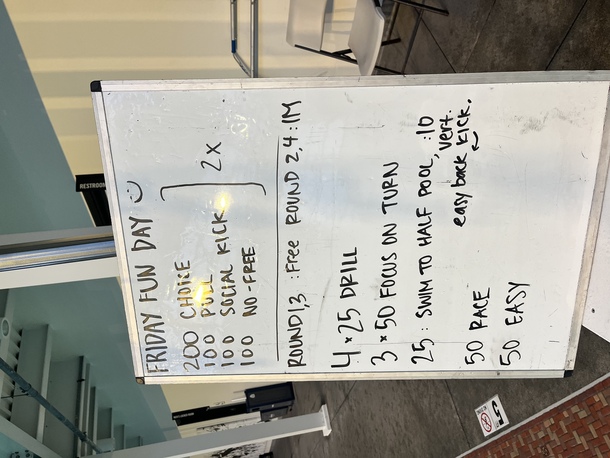 FRIDAY FUN DAY
200 CHOICE
100 PULL
100 SOCIAL KICK
100 NO-FREE
2x
ROUND 1,3 : Free ROUND 2,4 : IM
4 x 25 DRILL
3 x 50 FOCUS ON TURN
25 : SWIM TO HALF POOL, :10
vert.
easy back KICK.
50 RACE
50 EASY
5